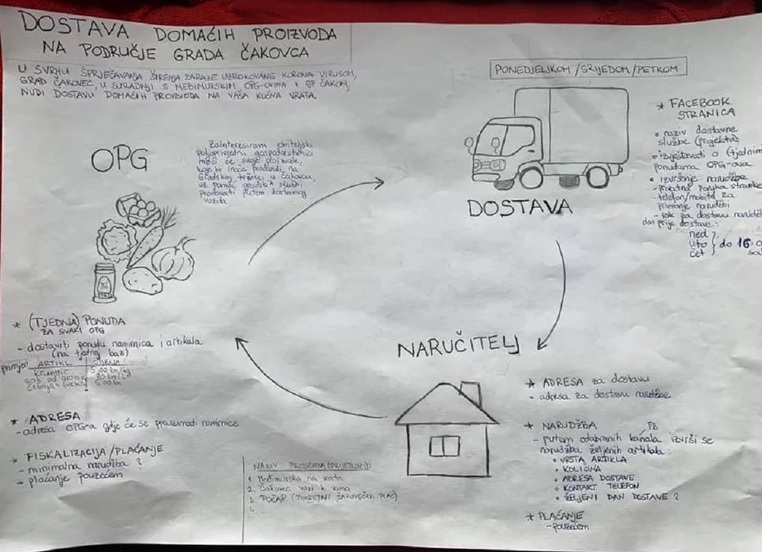 DOSTAVA DOMAĆIH PROIZVODA
NA PODRUČJE GRADA ČAKOVCA
U SVRHU SPRJEČAVANJA ŠIRENJA ZARAZE UZROKOVANE KORONA VIRUSOM,
GRAD ČAKOVEC, U SURADNJI S MEĐIMURSKIM OPG-OVIMA I GP ČAKOM,
NUDI DOSTAVU DOMAĆIH PROIZVODA NA VAŠA KUĆNA VRATA.
PONEDJELJKOM/SRIJEDOM/PETKOM
OPG
Zainteresirani obiteljski
poljoprivredni gospodarstvenici
svoje proizvode,
koje bi inače prodavali na
gradskoj tržnici u Čakovcu,
uz pomoć gradskih službi
prodavati putem dostavnog
vozila
DOSTAVA
* FACEBOOK
STRANICA
• naziv dostavne
službe (projekta)
• izvještavati o (tjednim)
ponudama OPG-ova
• izvršenje narudžbe
- privatna poruka stranke
- telefon/mobitel za
primanje narudžbi
- rok za dostavu narudžbi
dan prije dostave:
ned
uto
čet
do 16
* (TJEDNA) PONUDA
ZA SVAKI OPG
- dostaviti ponudu namirnica i artikala
(na tjednoj bazi)
primjer
ARTIKL
CIJENA
KRUMPIR 5,00 kn/kg
NARUČITELJ
* ADRESA
- adresa OPG-a gdje će se preuzimati namirnice
* FISKALIZACIJA/PLAĆANJE
- minimalna narudžba ?
- plaćanje pouzećem
NAZIV PROJEKTA
1. Međimursko na vrata
2. Čakovec vozi k vama
3. POČAP
4.
* ADRESA za dostavu
- adresa za dostavu narudžbe
* NARUDŽBA
- putem odabranih kanala izvrši se
narudžba željenih artikala:
• VRSTA ARTIKLA
• KOLIČINA
• ADRESA DOSTAVE
• KONTAKT TELEFON
• ŽELJENI DAN DOSTAVE ?
* PLAĆANJE
- pouzećem